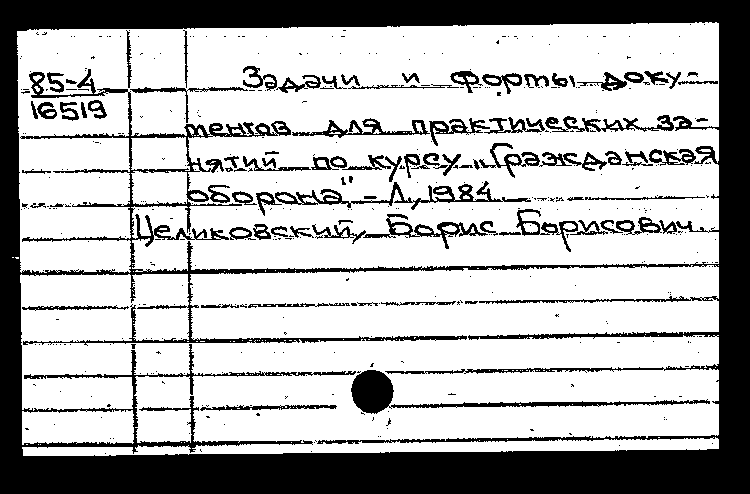 85-4
16519
Задачи и формы доку-
ментов для практических за-
нятий по курсу „Гражданская
оборона". – Л., 1984
Целиковский, Борис Борисович.